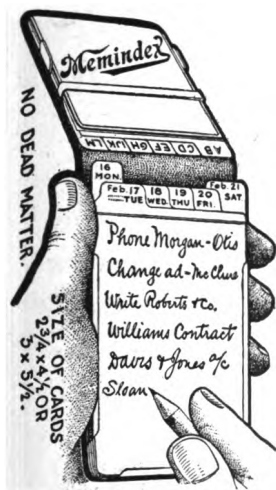 Memindex
AB CD EF GH IJK LM
16
MON.
Feb. 17
TUE
18
WED.
19
THU
20
FRI.
Feb. 21
SAT
Phone Morgan-Otis
Change ad-McClure
Write Roberts & Co.
Williams Contract
Davis & Jones a/c
Sloan
NO DEAD MATTER.
SIZE OF CARDS
2¾ x 4½, OR
3 x 5½.